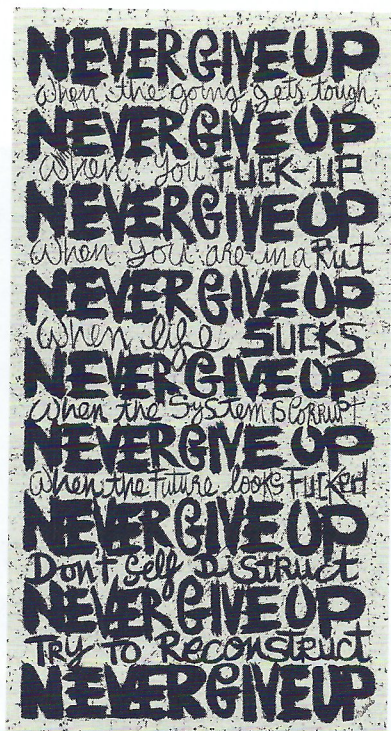 NEVER GIVE UP
when the going gets tough
NEVER GIVE UP
when you FUCK-UP
NEVER GIVE UP
when you are in a Rut
NEVER GIVE UP
when life SUCKS
NEVER GIVE UP
when the SYSTEM is CORRUPT
NEVER GIVE UP
when the Future looks FUCKed
NEVER GIVE UP
Dont Self DiStruct
NEVER GIVE UP
TRY TO Reconstruct
NEVER GIVE UP